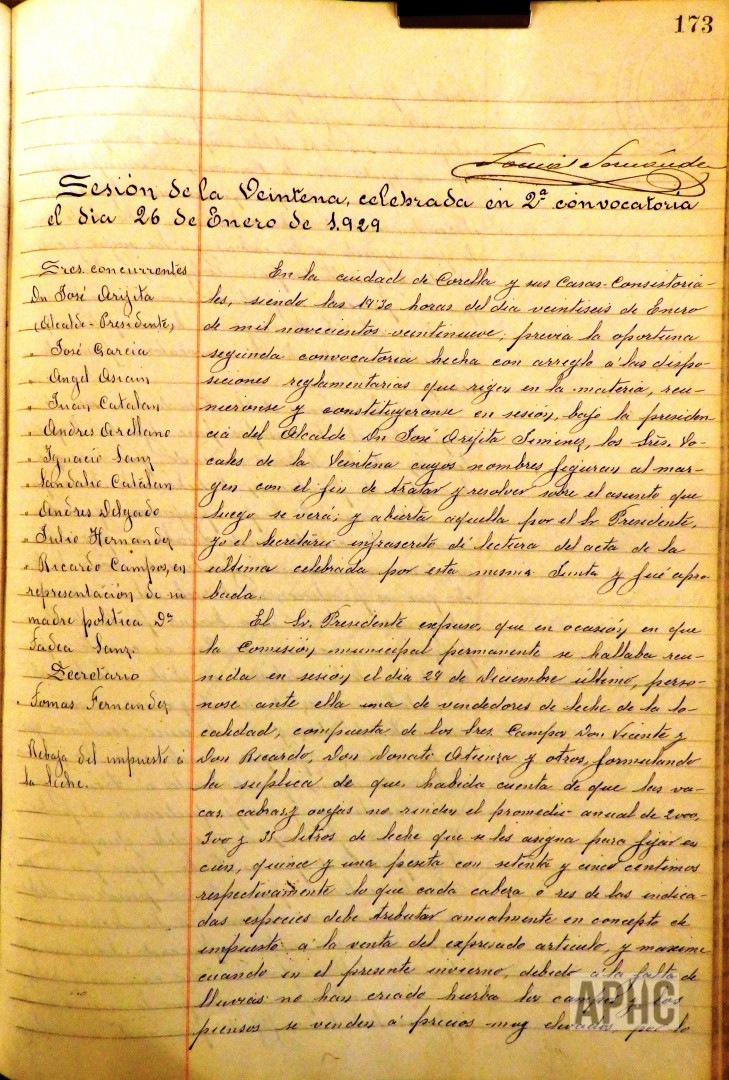 173
Sesión de la Veintena, celebrada en 2ª convocatoria
el dia 26 de Enero de 1.929
Sres. concurrentes
Dn José Arijita
(Alcalde-Presidente)
" José Garcia
" Angel Asiain
" Juan Catalan
" Andres Arellano
" Ignacio Sanz
" Sandalio Catalan
" Andres Delgado
" Julio Hernandez
" Ricardo Campos, en
representación de su
madre politica Dª
Tadea Sanz.
Secretario
Tomas Fernandez
Rebaja del impuesto á
la leche.
En la ciudad de Corella y sus Casas-Consistoria-
les, siendo las horas del dia veintiseis de Enero
de mil novecientos veintinueve, previa la oportuna
segunda convocatoria hecha con arreglo á las dispo-
siciones reglamentarias que rigen en la materia, reu-
nieronse y constituyeronse en sesión, bajo la presiden-
cia del Alcalde Dn José Arijita Jimenez, los Sres. Vo-
cales de la Veintena cuyos nombres figuran al mar-
gen con el fin de tratar y resolver sobre el asunto que
luego se verá; y abierta aquella por el Sr. Presidente,
yo el Secretario infrascrito dí lectura del acta de la
ultima celebrada por esta misma Junta y fué apro-
bada.
El Sr. Presidente expuso, que en ocasión en que
la Comisión municipal permanente se hallaba reu-
nida en sesión el dia de Diciembre último, perso-
nose ante ella una de vendedores de leche de la lo-
calidad, compuesta de los Sres. Campos Don Vicente y
Don Ricardo, Don Donato Atienza y otros, formulando
la suplica de que, habida cuenta de que las va-
cas, cabras y ovejas no rinden el promedio anual de 2000,
300 y 35 litros de leche que se les asigna para fijar en
cien, quince y una peseta con setenta y cinco centimos
respectivamente lo que cada cabeza ó res de las indica-
das especies debe tributar anualmente en concepto de
impuesto á la venta del expresado articulo, y maxime
cuando en el presente invierno, debido á la falta de
lluvias no han criado hierba los campos y los
piensos se venden á precios muy elevados, por lo
APHC